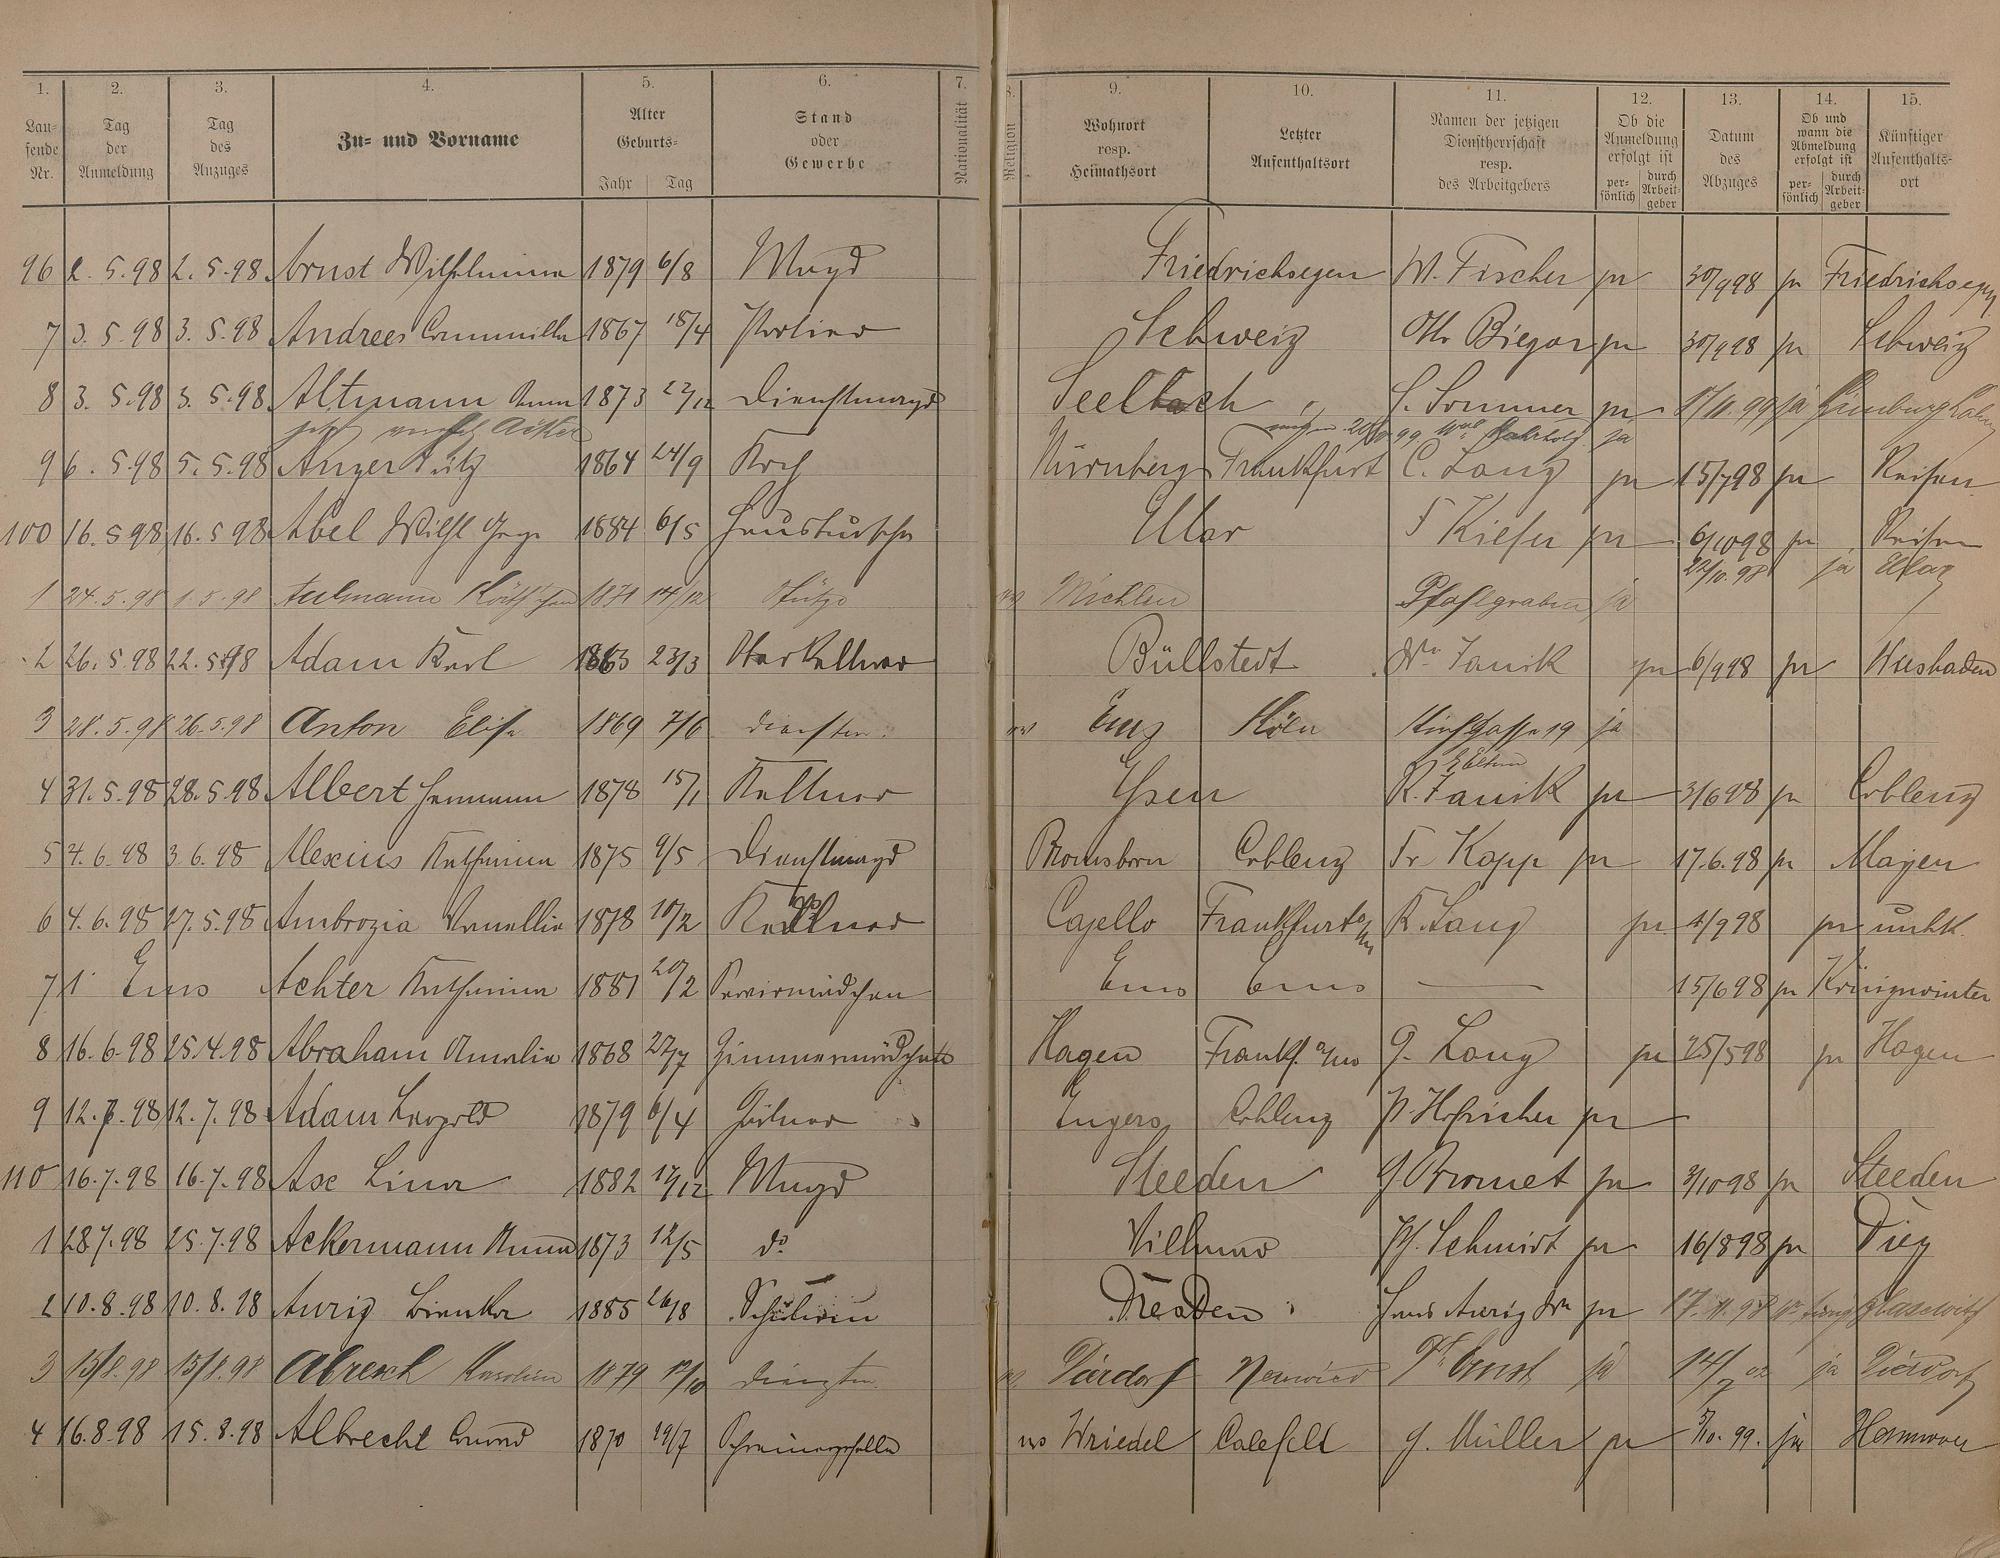 1. 2. 3. 4. 5. 6. 7. 8. 9. 10. 11. 12. 13. 14. 15.
Lau-
fende
Nr.
Tag
der
Anmeldung
Tag
des
Anzuges
Zu- und Vorname
Alter
Geburts-
Jahr Tag
Stand
oder
Gewerbe
Nationalität
Religion
Wohnort
resp.
Heimathsort
Letzter
Aufenthaltsort
Namen der jetzigen
Dienstherrschaft
resp.
des Arbeitgebers
Ob die
Anmeldung
erfolgt ist
per-
sönlich
durch
Arbeit-
geber
Datum
des
Abzuges
Ob und
wann die
Abmeldung
erfolgt ist
per-
sönlich
durch
Arbeit-
geber
Künftiger
Aufenthalts-
ort
96 2. 5. 98 2. 5. 98 Arnst Wilhelmine 1879 6/8 Magd Friedrichsegen W. Fischer ja 30/9 98 ja Friedrichsegen
7 3. 5. 98 3. 5. 98 Andrees 1867 18/4 Portier Schweiz Otto ja 30/9 98 ja Schweiz
8 3. 5. 98 3. 5. 98 Altmann Anna 1873 Dienstmagd Seelbach " S. Sommer ja 99 ja Limburg
jetzt
9 6. 5. 98 5. 5. 98 Anger Fritz 1864 24/9 Koch Nürnberg Frankfurt C. Lang ja 15/7 98 ja Reisen
100 16. 5 98 16. 5 98 Abel Wilh 1884 6/5 Hausbursche Ular F Kiefer ja 6/10 98 ja Reisen
22/10. 98 ja
1 24. 5. 98 1. 5. 98 Aulmann Käthchen 1871 14/12 Stütze Miehlen Pfahlgraben ja
2 26. 5. 98 22. 5. 98 Adam Karl 1863 23/3 Oberkellner Büllstedt Janik ja 6/9 98 ja Wiesbaden
3 28. 5. 98 26. 5. 98 Anton Elise 1869 7/6 Dienstm. Ems Köln 19 ja
4 31. 5. 98 28. 5. 98 Albert Hermann 1878 15/1 Kellner Essen R. Janik ja 3/6 98 ja Coblenz
5 4. 6. 98 3. 6. 98 Alexius Katharina 1875 9/5 Dienstmagd Coblenz Fr Kopp ja 17. 6. 98 ja Mayen
6 4. 6. 98 27. 5. 98 Ambrozia 1878 10/2 Kellner Cajello Frankfurt a/M R. Lang ja 98 ja unbk.
7 1 Ems Achter Katharina 1881 20/2 Serviermädchen Ems Ems — 15/6 98 ja Königswinter
8 16. 6. 98 25. 4. 98 Abraham Amalie 1868 27/7 Zimmermädchen Hagen Frankf. a/M G. Lang ja 25/5 98 ja Hagen
9 12. 7. 98 12. 7. 98 Adam Leopold 1879 6/4 Engers Coblenz ja
110 16. 7. 98 16. 7. 98 Axe Lina 1882 Magd Steeden G Bromet ja 3/10 98 ja Steeden
1 28 7. 98 25. 7. 98 Ackermann Anna 1873 12/5 do Villmar Ph. Schmidt ja 16/8 98 ja Diez
2 10. 8. 98 10. 8. 98 Aurig Bianka 1885 26/8 Schülerin Dresden Aurig ja 17. 11. 98
3 15/8. 98 15/8. 98 Abresch Karoline 1879 Dienstm. Dierdorf Neuwied Ernst ja 14/7 02 ja Dierdorf
4 16. 8. 98 15. 8. 98 Albrecht 1870 19/7 Schreinergeselle Wriedel Calefeld G. Müller ja 99. ja Hannover